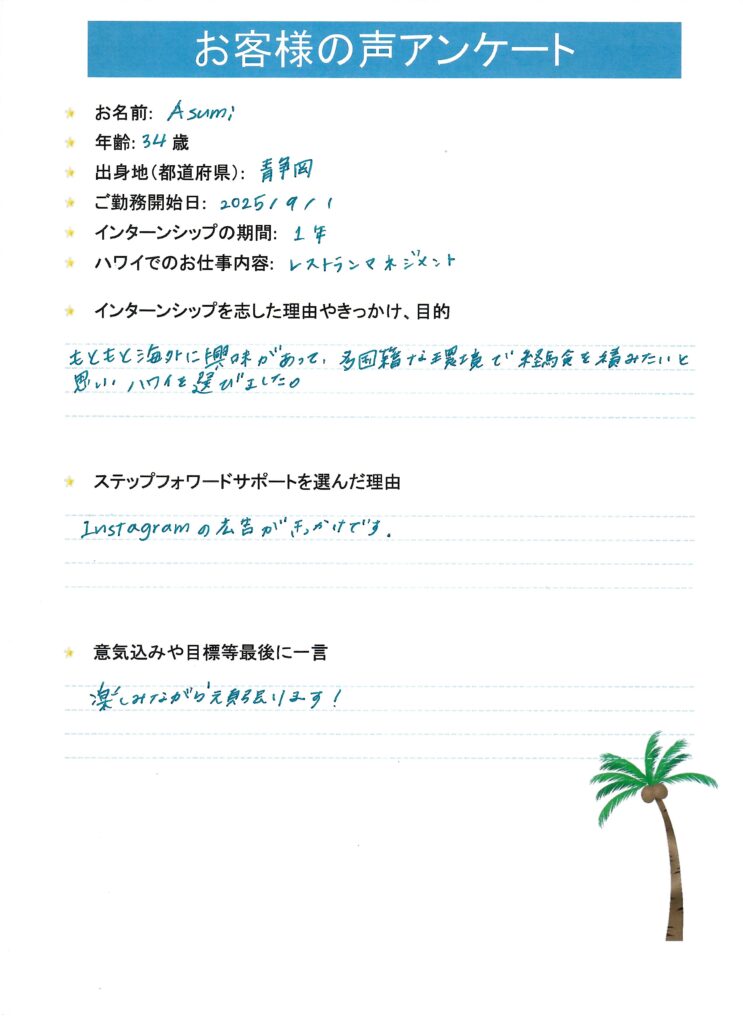 お客様の声アンケート
お名前: Asumi
年齢: 34 歳
出身地(都道府県): 静岡
ご勤務開始日: 2025/9/1
インターンシップの期間: 1年
ハワイでのお仕事内容: レストランマネジメント
インターンシップを志した理由やきっかけ、目的
もともと海外に興味があって、多国籍な環境で経験を積みたいと
思いハワイを選びました。
ステップフォワードサポートを選んだ理由
Instagramの広告がきっかけです.
意気込みや目標等最後に一言
楽しみながら頑張ります!